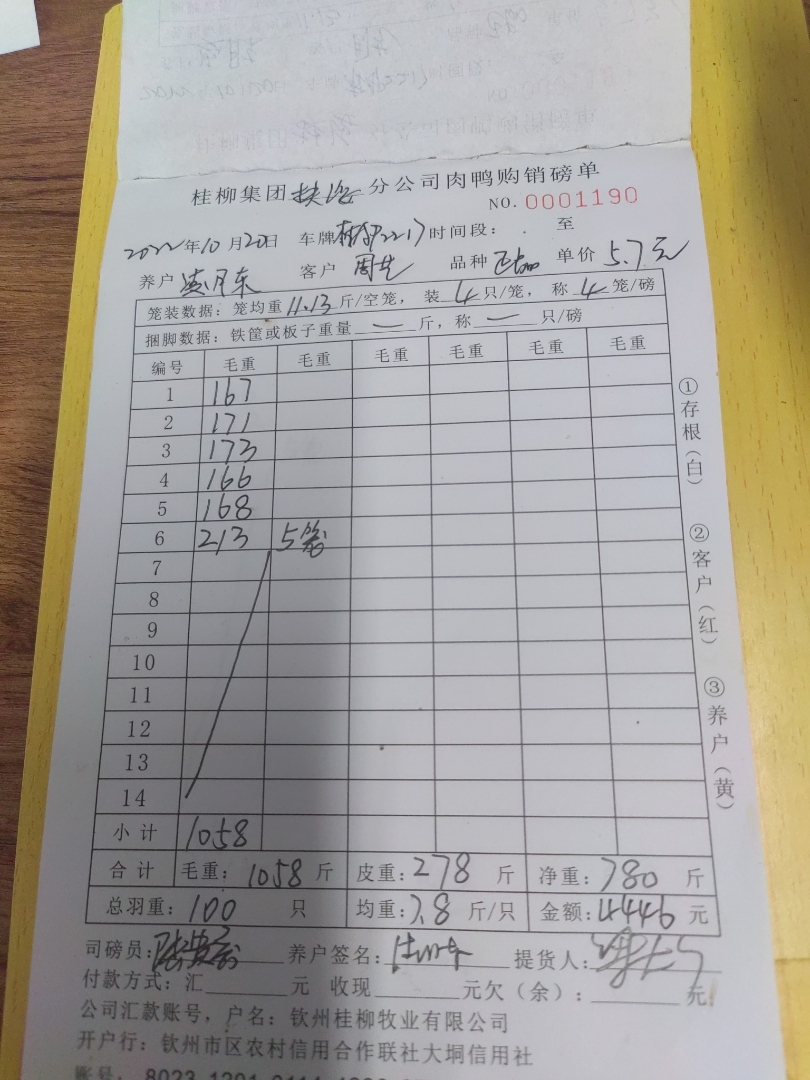 桂柳集团扶 分公司肉鸭购销磅单
NO. 0001190
2022年10月20日 车牌 2217 时间段： 至
养户 东 客户 周生 品种 单价 5.7元
笼装数据：笼均重 11.13 斤/空笼，装 4 只/笼，称 4 笼/磅
捆脚数据：铁筐或板子重量 — 斤，称 — 只/磅
编号 毛重 毛重 毛重 毛重 毛重 毛重
1 167
2 171
3 173
4 166
5 168
6 213 5笼
7
8
9
10
11
12
13
14
小计 1058
合计 毛重：1058 斤 皮重：278 斤 净重：780 斤
总羽重：100 只 均重：7.8 斤/只 金额：4446 元
司磅员： 养户签名： 提货人：
付款方式：汇 元 收现 元欠（余）： 元
公司汇款账号，户名：钦州桂柳牧业有限公司
开户行：钦州市区农村信用合作联社大垌信用社
账号：8023 1201
①存根（白）
②客户（红）
③养户（黄）